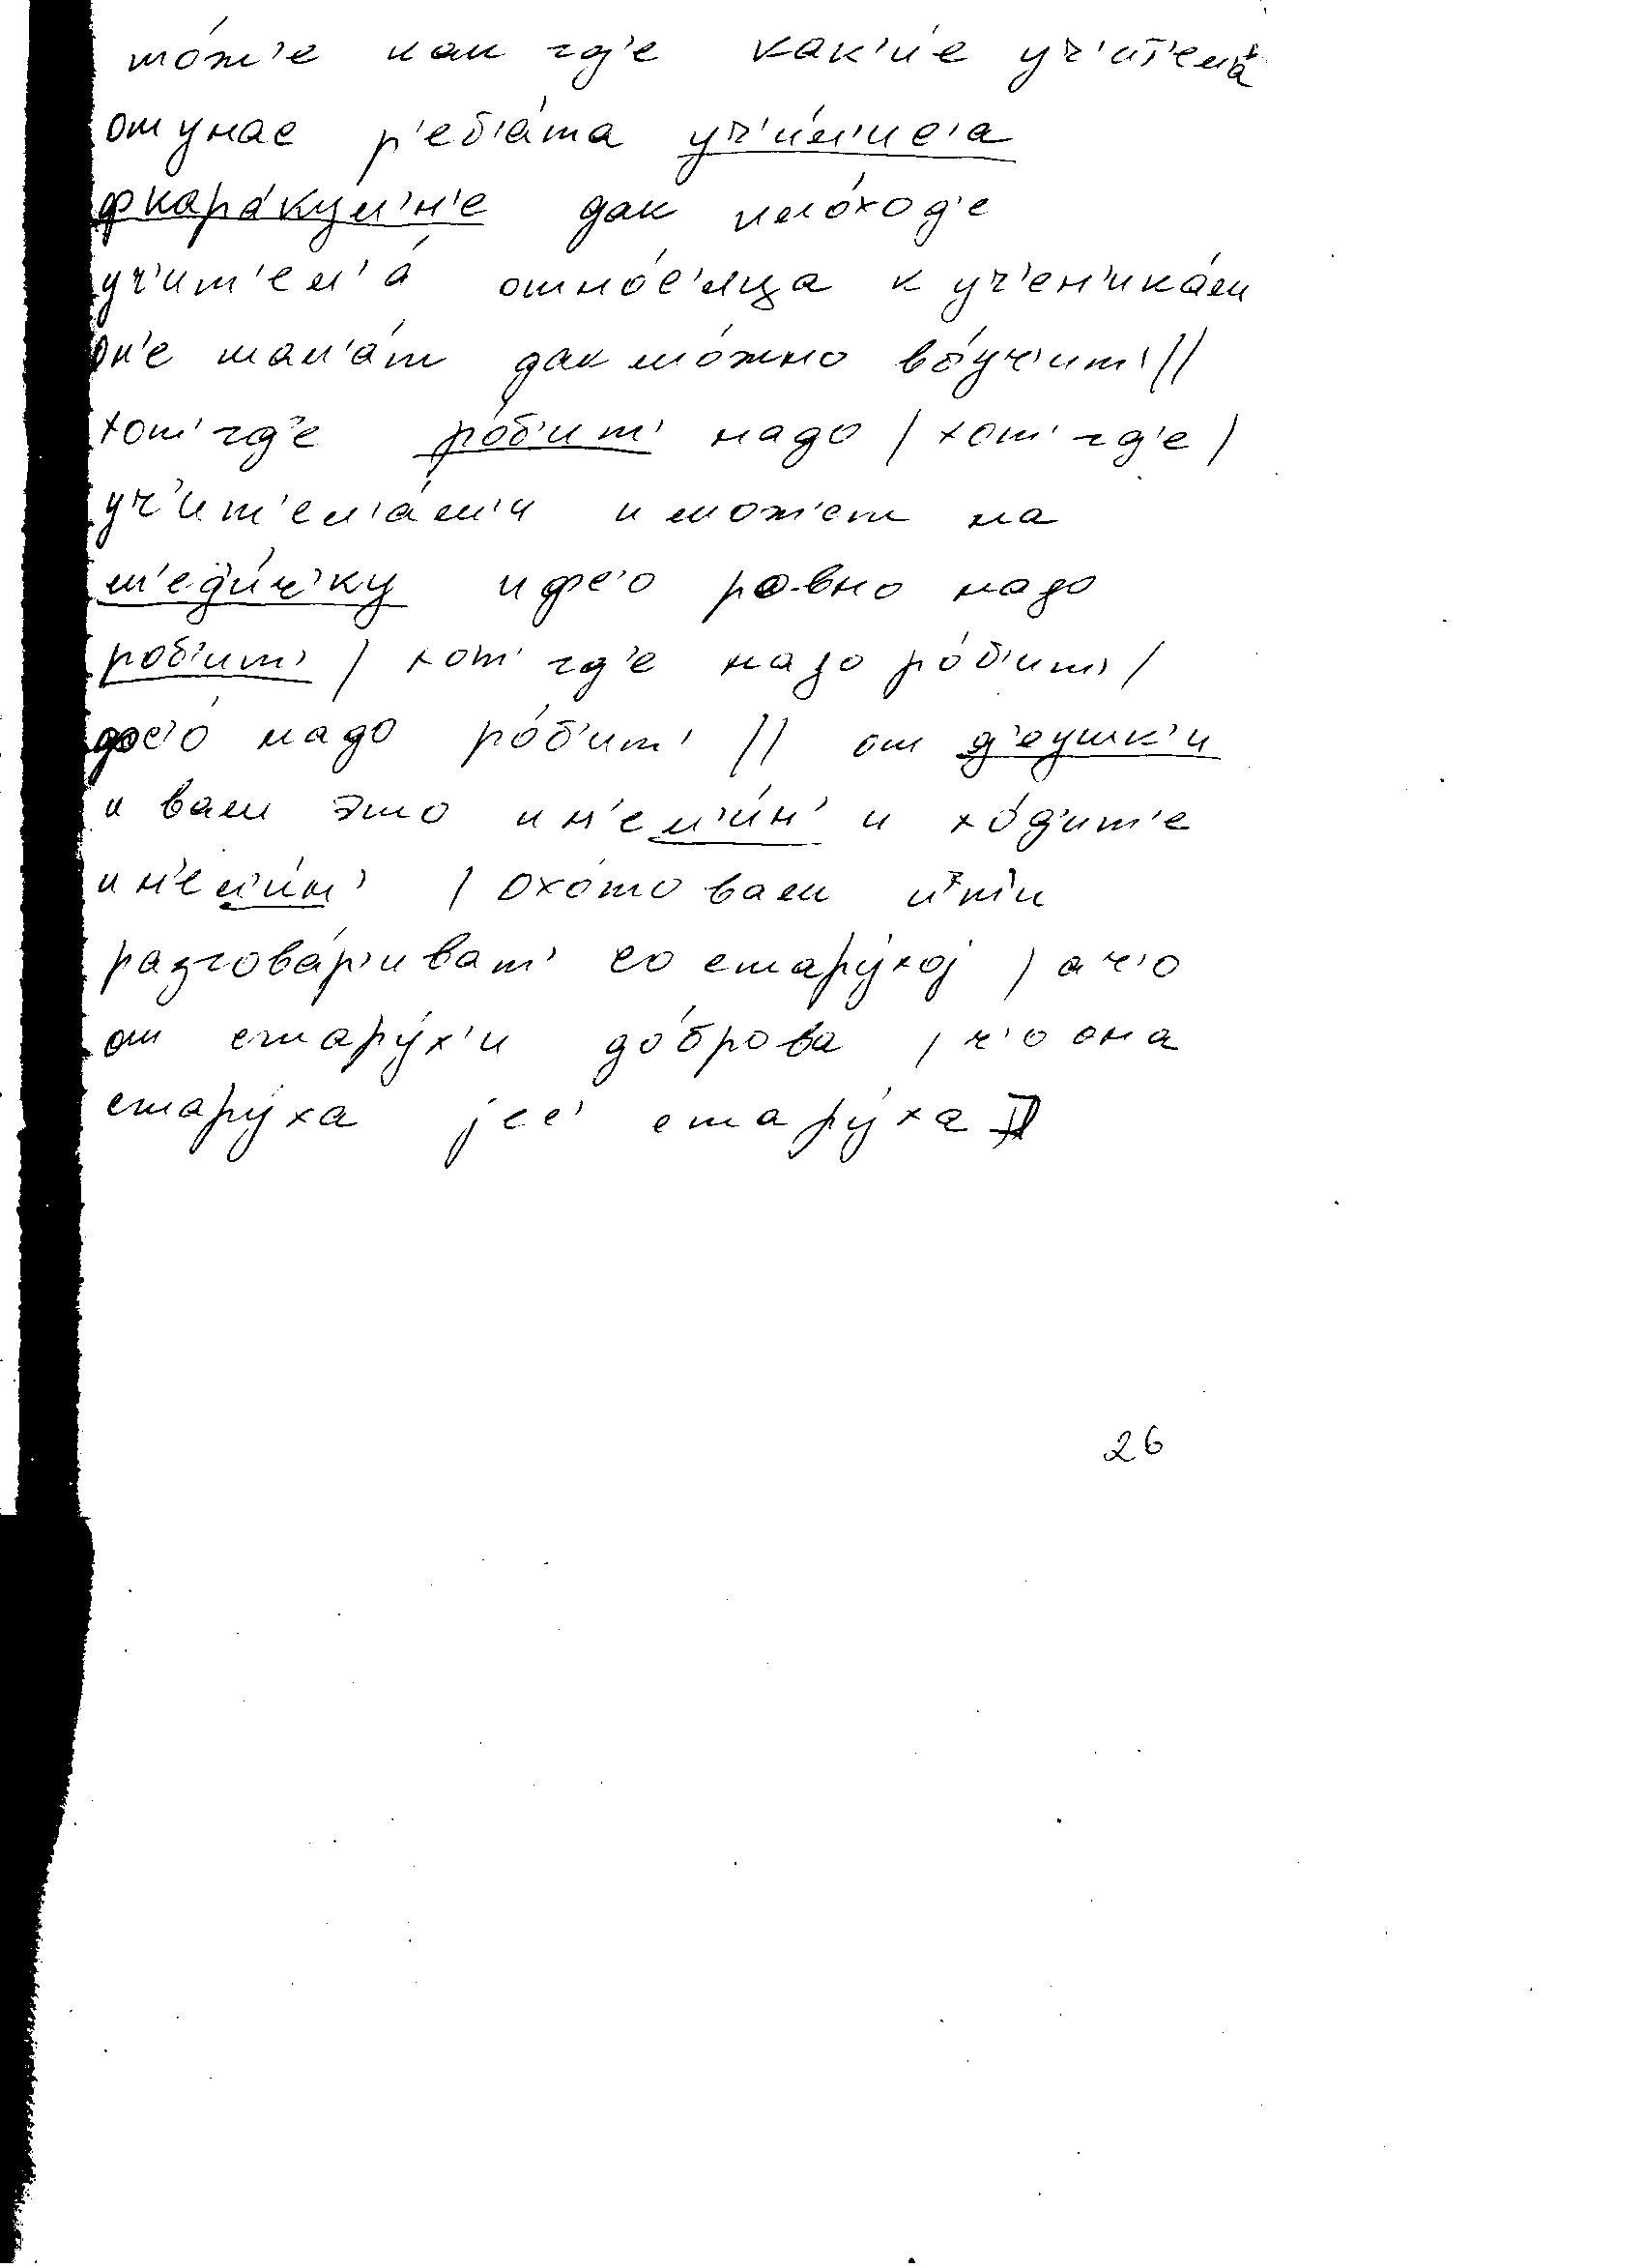 мо́ж'е как гд'е как'и́е уч'ит'ел'а́
от у нас р'еб'а́та уч'и́л'ис'а
ф кара́кул'н'е дак пло́ход'е
уч'ит'ел'а́ отно́с'яца к уч'ен'ика́м
он'е шал'а́т дак мо́жно во́уч'ит' //
хот' гд'е ро́б'ит' надо / хот' гд'е /
уч'ит'ел'а́м'и и может на
м'ед'и́ч'ку и фс'о ровно надо
роб'ит' / хот' гд'е надо ро́б'ит' /
фс'о́ надо ро́б'ит' // от д'еушк'и
и вам это и н'е л'и́н' и хо́д'ит'е
и н'е л'и́н' / охо́то вам ит'и
разгова́р'иват' со стару́хој / а ч'о
от стару́х'и до́брова / ч'о она
стару́ха јес' стару́ха //
26